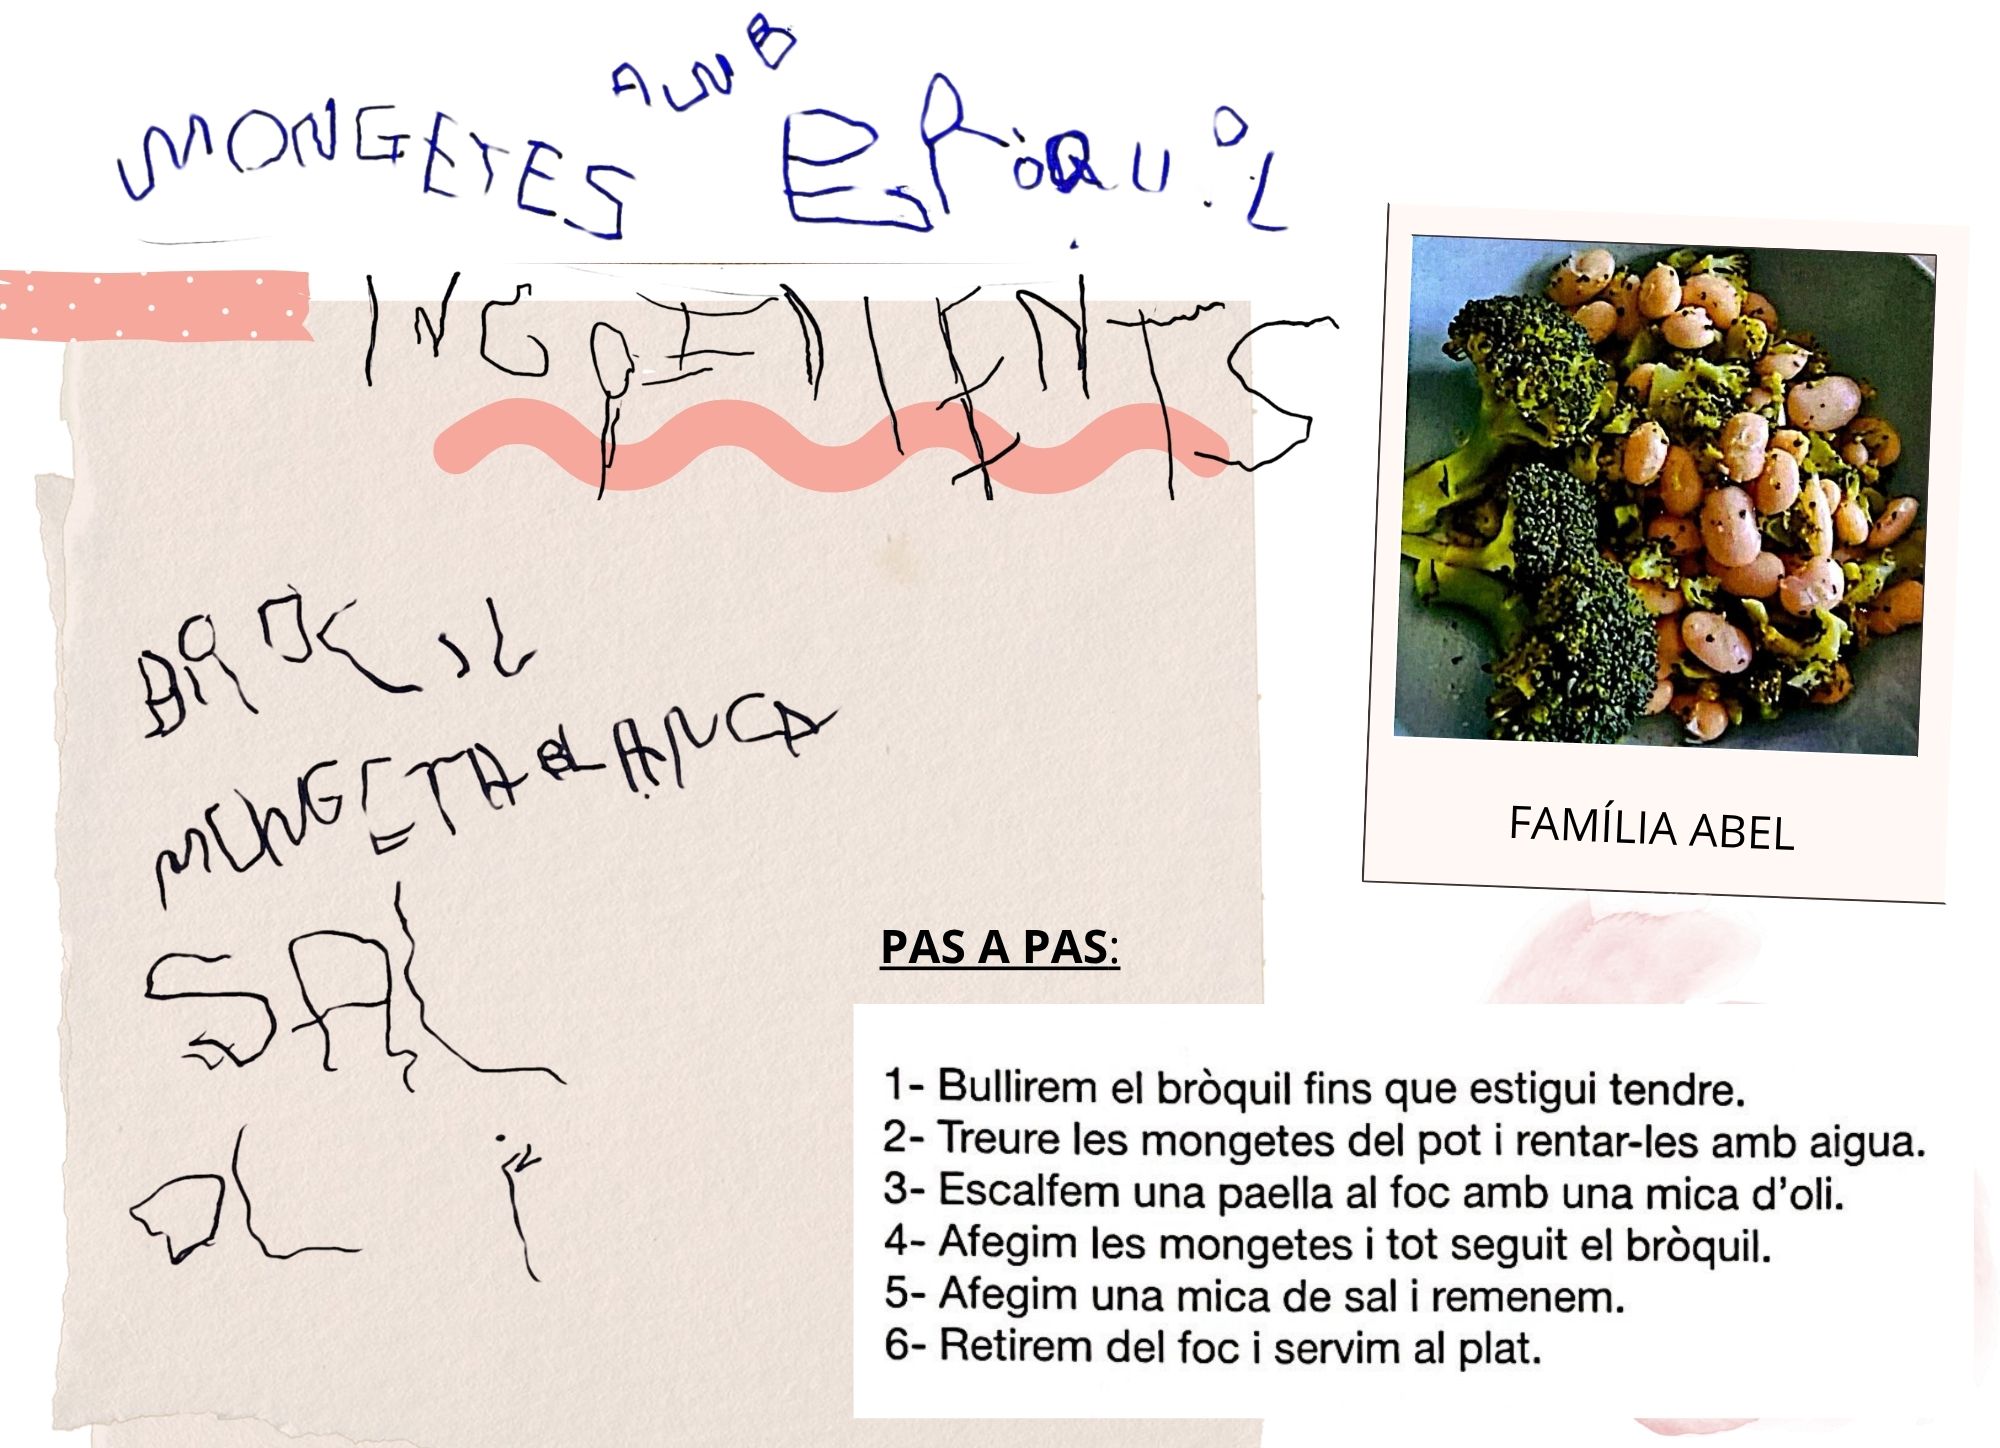 MONGETES AMB BRÒQUIL
INGREDIENTS
BROKIL
MONGETA BLANCA
SAL
OLI
FAMÍLIA ABEL
PAS A PAS:
1- Bullirem el bròquil fins que estigui tendre.
2- Treure les mongetes del pot i rentar-les amb aigua.
3- Escalfem una paella al foc amb una mica d'oli.
4- Afegim les mongetes i tot seguit el bròquil.
5- Afegim una mica de sal i remenem.
6- Retirem del foc i servim al plat.